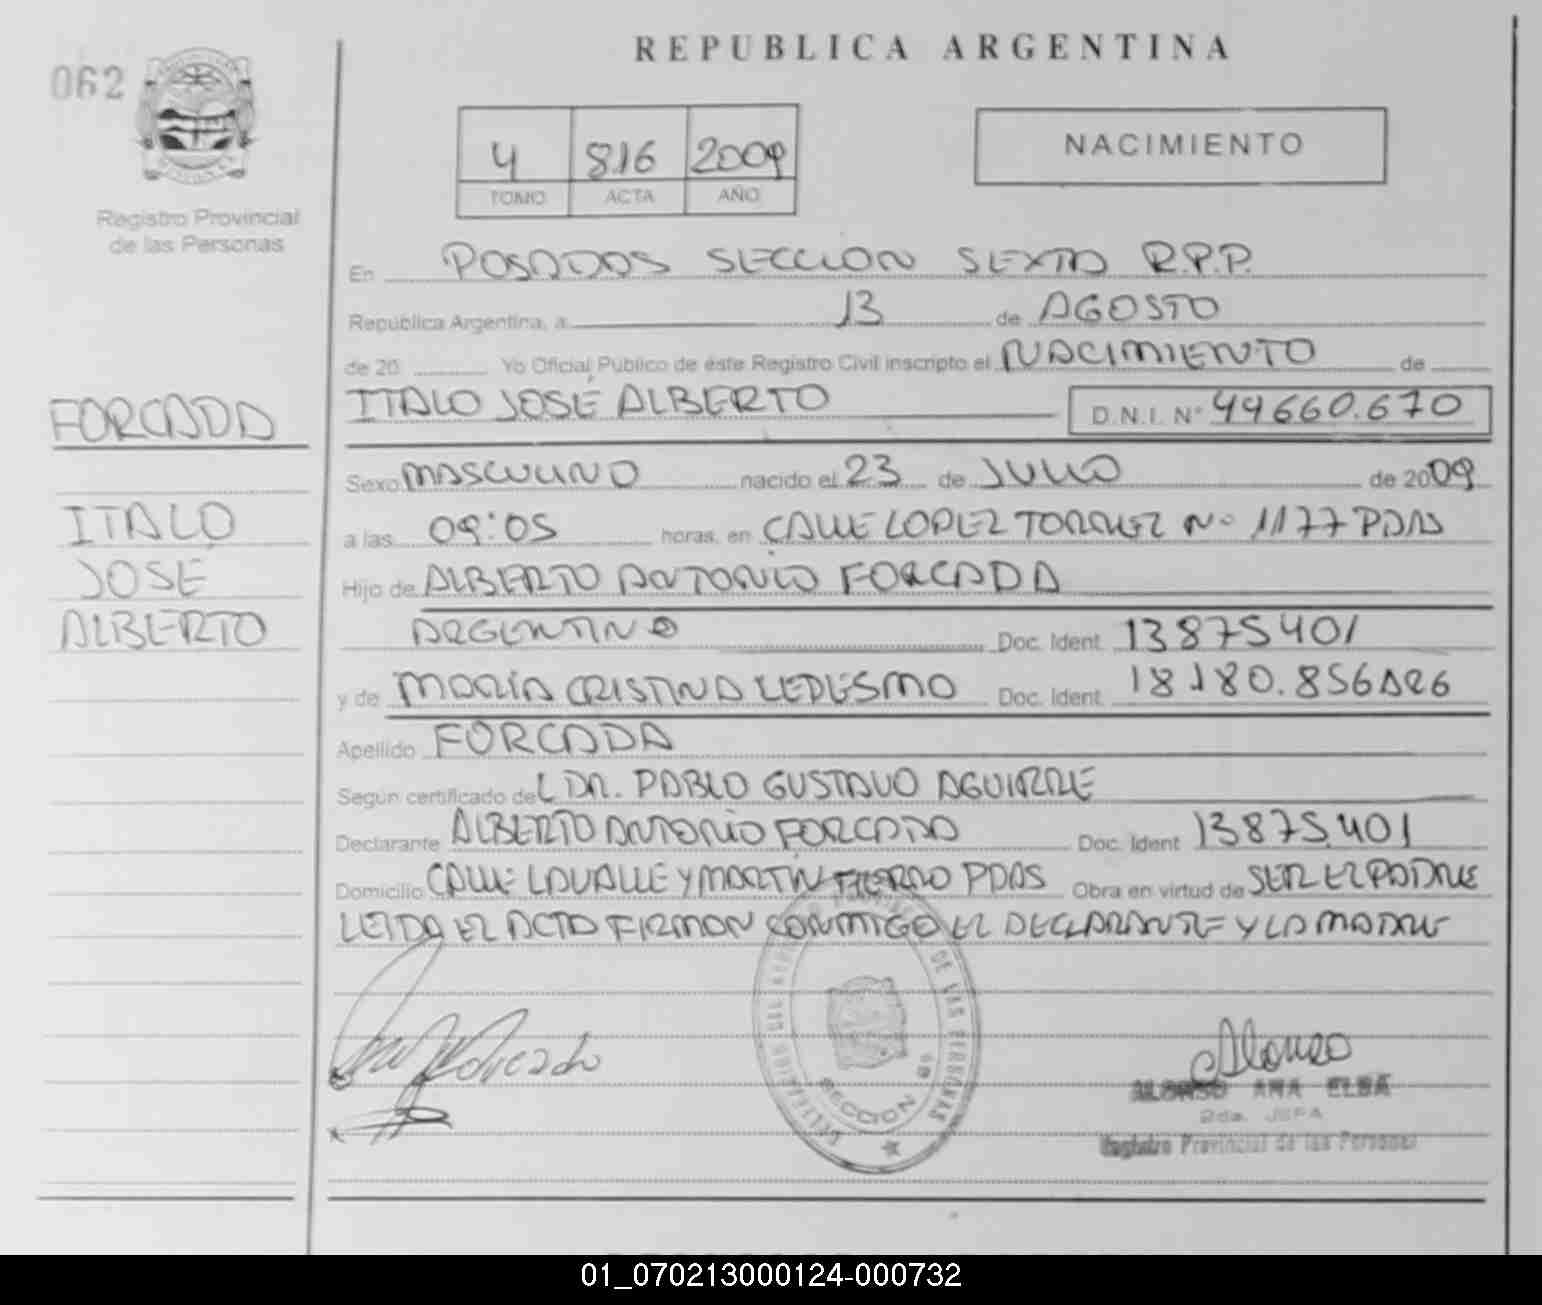 062
REPUBLICA ARGENTINA
4 816 2009
TOMO ACTA AÑO
NACIMIENTO
Registro Provincial
de las Personas
En POSADAS SECCION SEXTA R.P.P.
República Argentina, a 13 de AGOSTO
de 20 Yo Oficial Público de éste Registro Civil inscripto el NACIMIENTO de
FORCADA
ITALO JOSÉ ALBERTO D.N.I. N° 44660.670
Sexo MASCULINO nacido el 23 de JULIO de 2009
ITALO
JOSÉ
ALBERTO
a las 09:05 horas, en CALLE LOPEZ TORREZ No 1177 PDAS
Hijo de ALBERTO ANTONIO FORCADA
ARGENTINO Doc. Ident. 13875401
y de MARÍA CRISTINA LEDESMA Doc. Ident. 18180.856ARG
Apellido FORCADA
Según certificado de L DR. PABLO GUSTAVO AGUIRRE
Declarante ALBERTO ANTONIO FORCADA Doc. Ident 13875.401
Domicilio CALLE LAVALLE Y MARTIN FIERRO PDAS Obra en virtud de SER EL PADRE
LEIDA EL ACTA FIRMAN CONMIGO EL DECLARANTE Y LA MADRE
DE LAS PERSONAS
SECCION 6a
Alonso
ALONSO ANA ELBA
2da. JEFA
Registro Provincial de las Personas
01_070213000124-000732